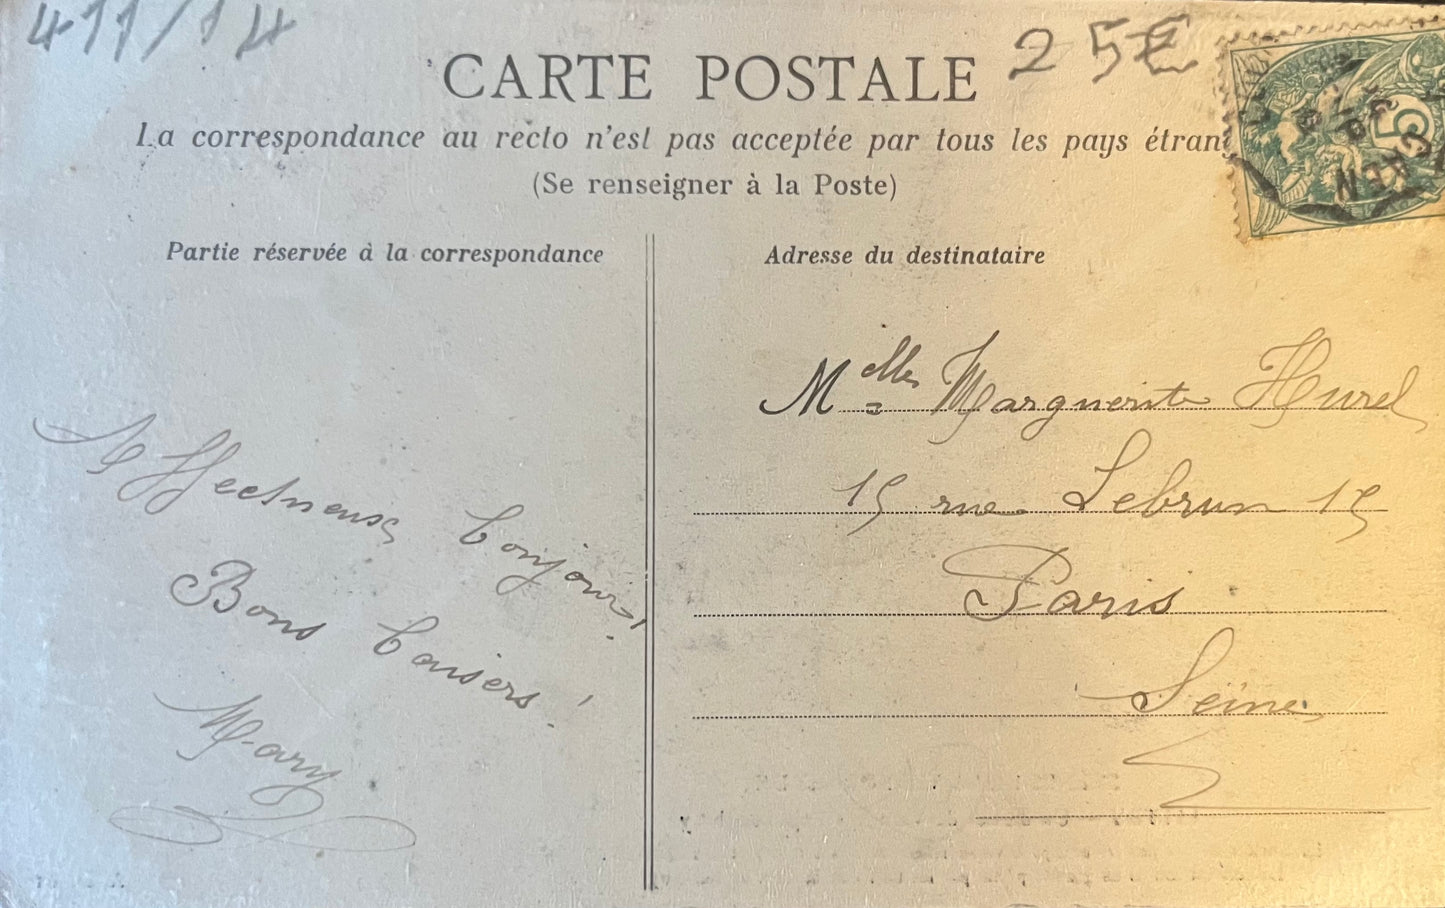 411/14
25€
CARTE POSTALE
La correspondance au recto n'est pas acceptée par tous les pays étran
(Se renseigner à la Poste)
Partie réservée à la correspondance
Affectueux bonjour!
Bons baisers!
Mary
Adresse du destinataire
Melles Marguerite Hurel
15 rue Lebrun 15
Paris
Seine
5
CAEN